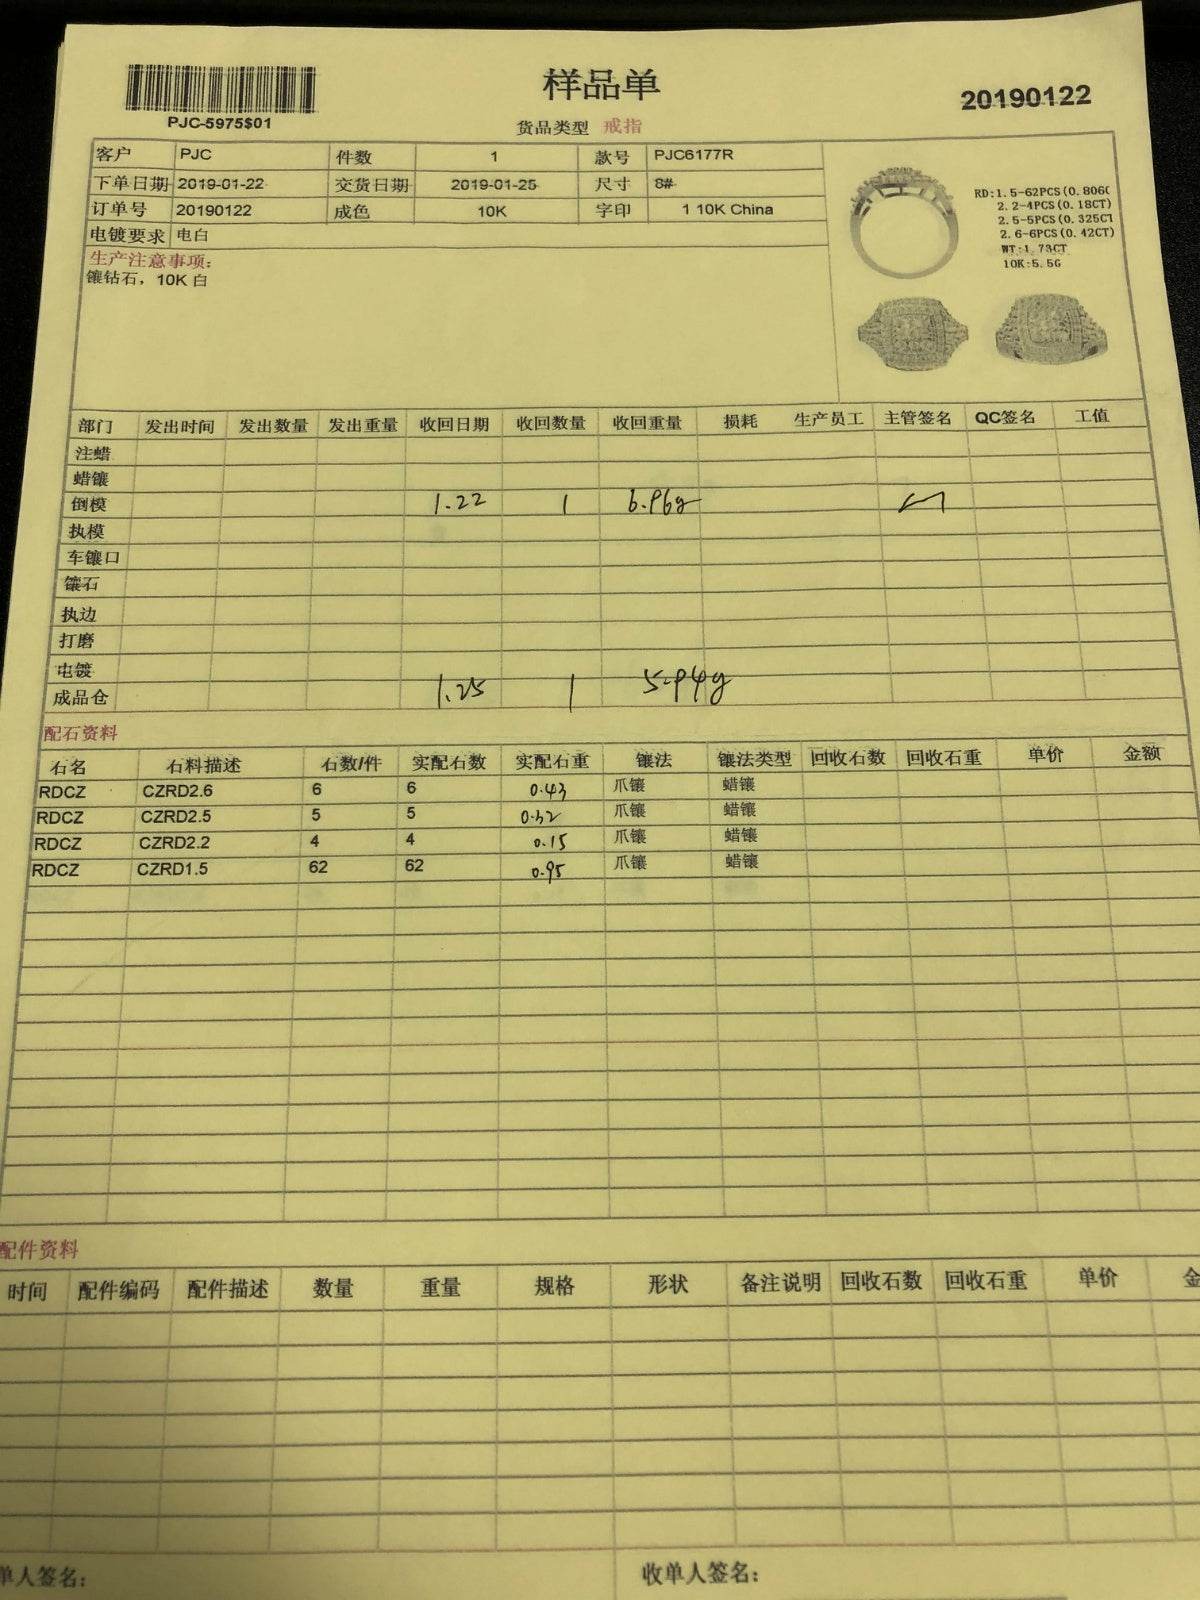 样品单
20190122
PJC-5975$01
货品类型 戒指
客户 PJC 件数 1 款号 PJC6177R
下单日期 2019-01-22 交货日期 2019-01-25 尺寸 8#
订单号 20190122 成色 10K 字印 1 10K China
电镀要求 电白
生产注意事项:
镶钻石，10K 白
RD:1.5-62PCS(0.806C
2.2-4PCS(0.18CT)
2.5-5PCS(0.325CT
2.6-6PCS(0.42CT)
WT:1.73CT
10K:5.5G
部门 发出时间 发出数量 发出重量 收回日期 收回数量 收回重量 损耗 生产员工 主管签名 QC签名 工值
注蜡
蜡镶
倒模 1.22 1 6.96g
执模
车镶口
镶石
执边
打磨
电镀
成品仓 1.25 1 5.94g
配石资料
石名 石料描述 石数/件 实配石数 实配石重 镶法 镶法类型 回收石数 回收石重 单价 金额
RDCZ CZRD2.6 6 6 0.43 爪镶 蜡镶
RDCZ CZRD2.5 5 5 0.32 爪镶 蜡镶
RDCZ CZRD2.2 4 4 0.15 爪镶 蜡镶
RDCZ CZRD1.5 62 62 0.95 爪镶 蜡镶
配件资料
时间 配件编码 配件描述 数量 重量 规格 形状 备注说明 回收石数 回收石重 单价 金
单人签名: 收单人签名: